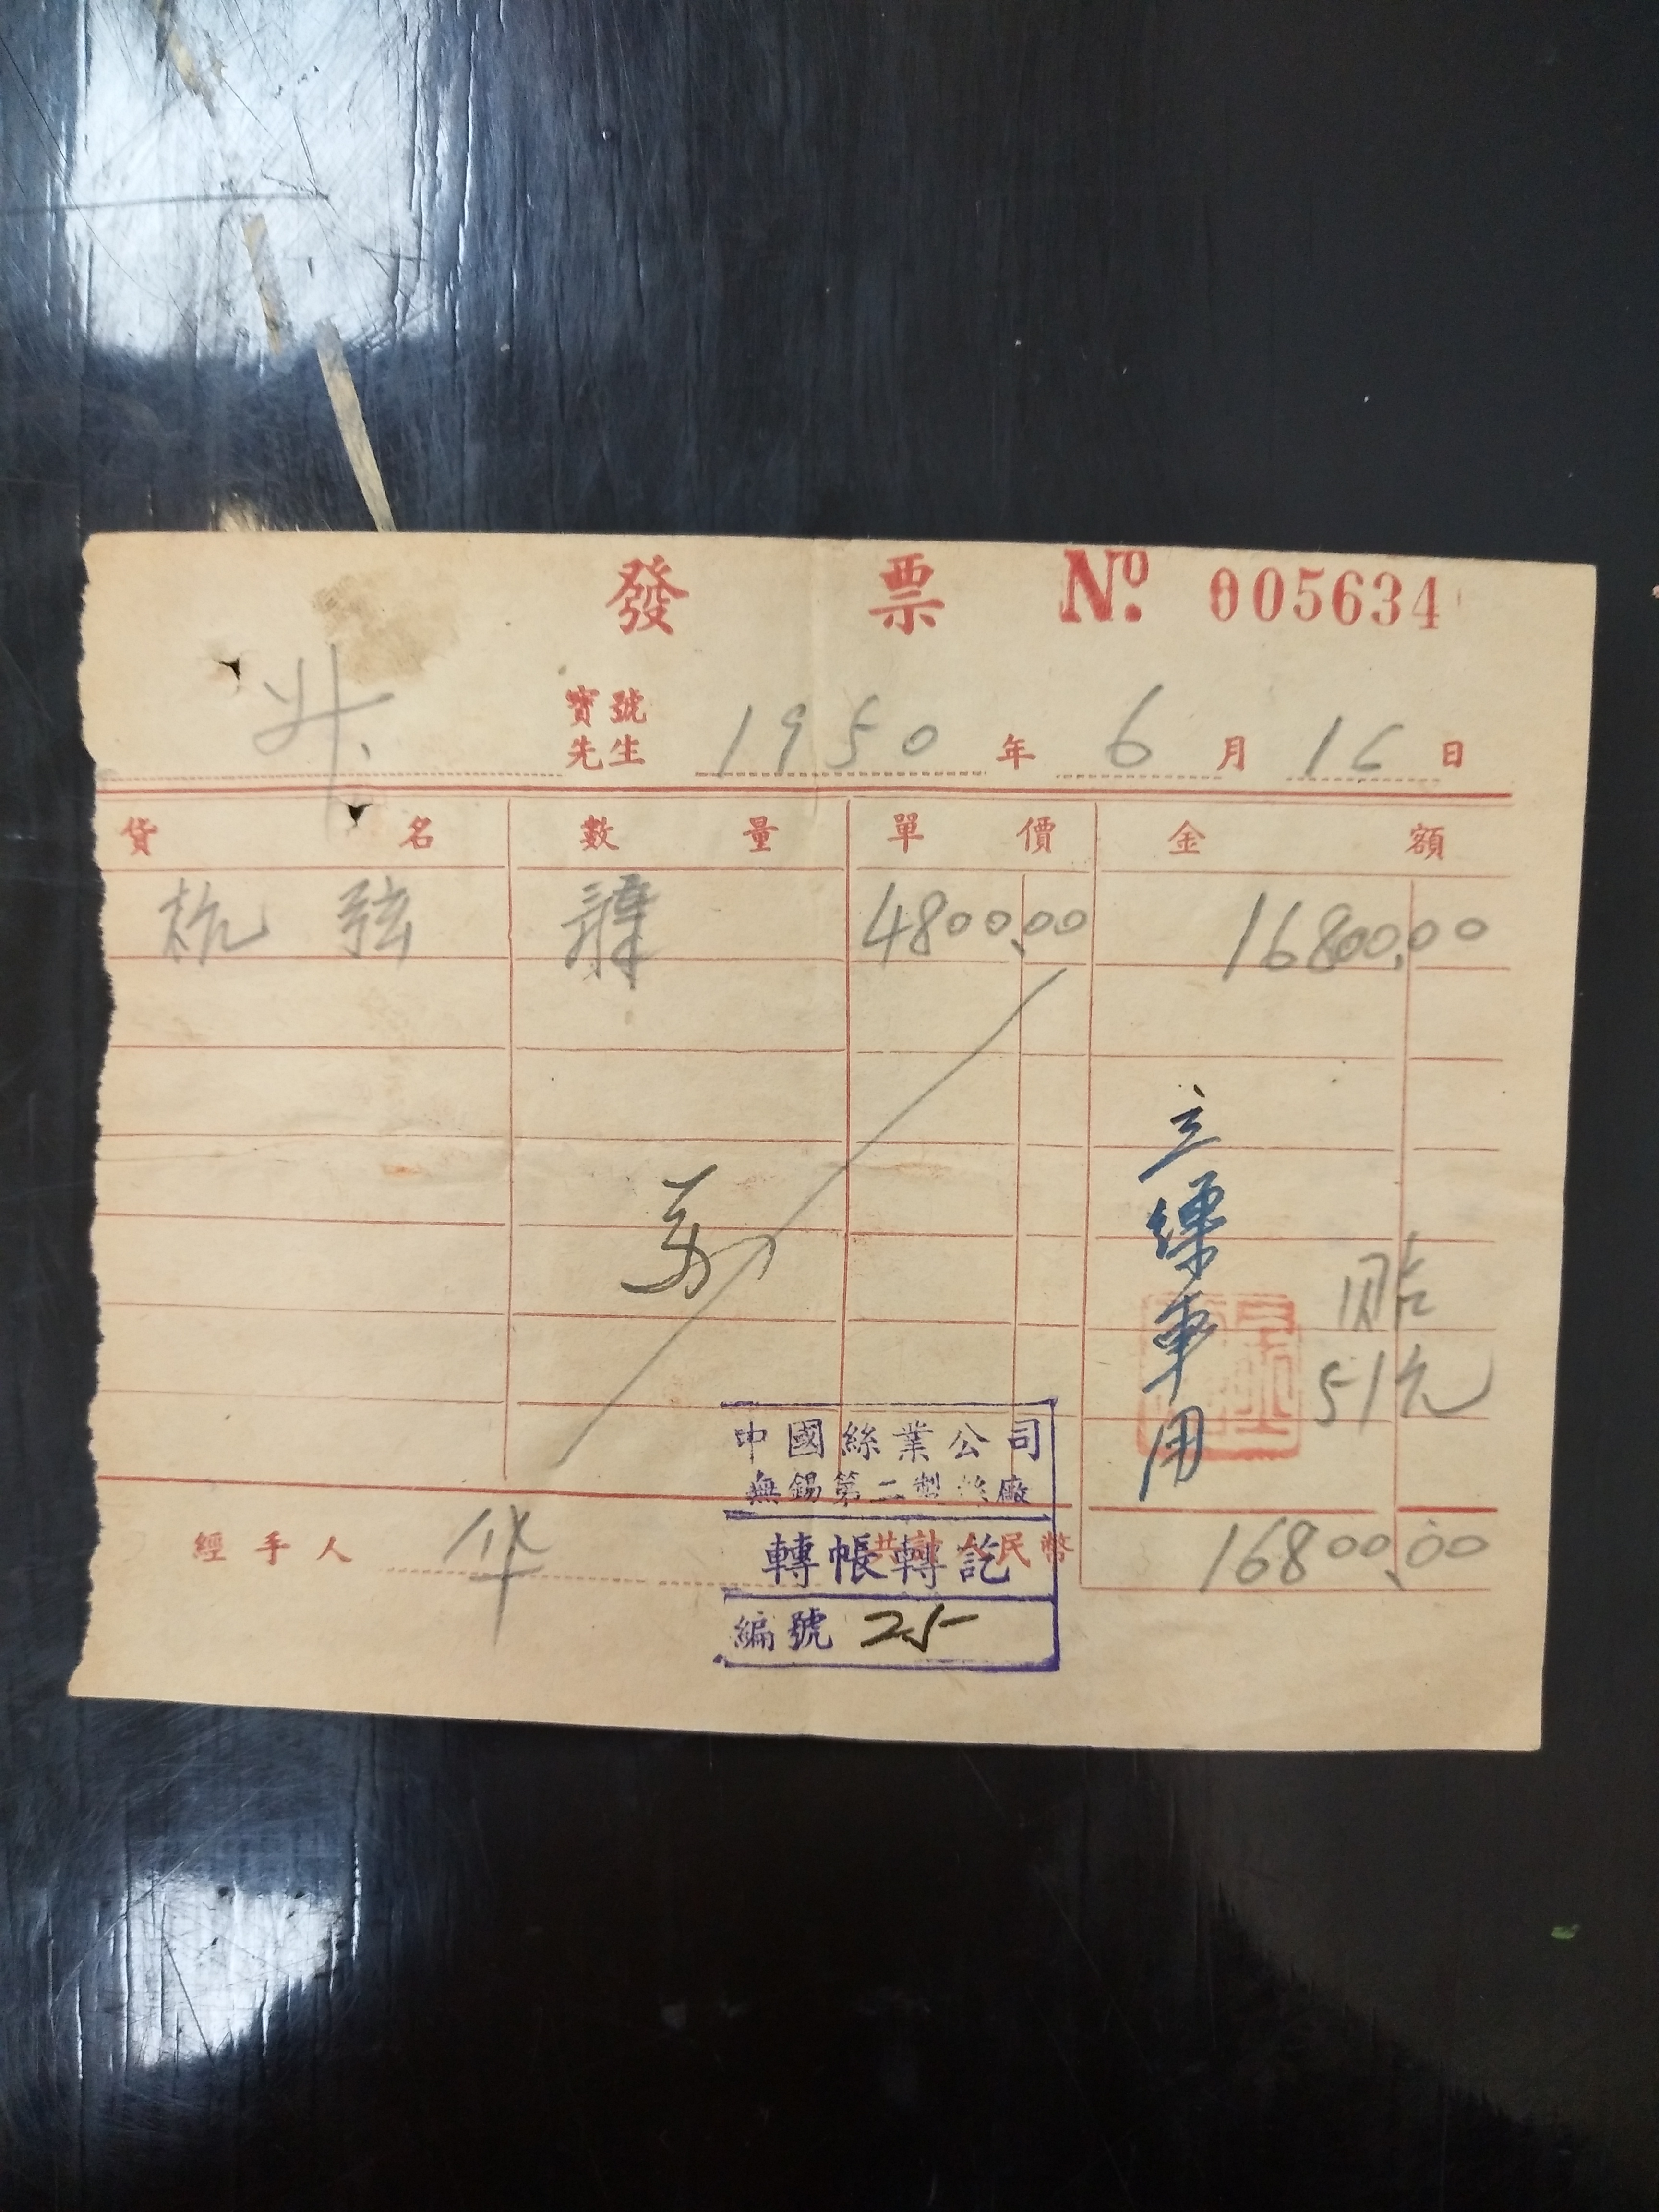 發票 No. 005634
寶號
先生 1950年6月16日
貨名 數量 單價 金額
杭弦 4800.00 16800.00
立繅車用
貼
51元
中國絲業公司
無錫第二製絲廠
轉帳轉訖
編號 25
經手人 华 共計人民幣 16800.00